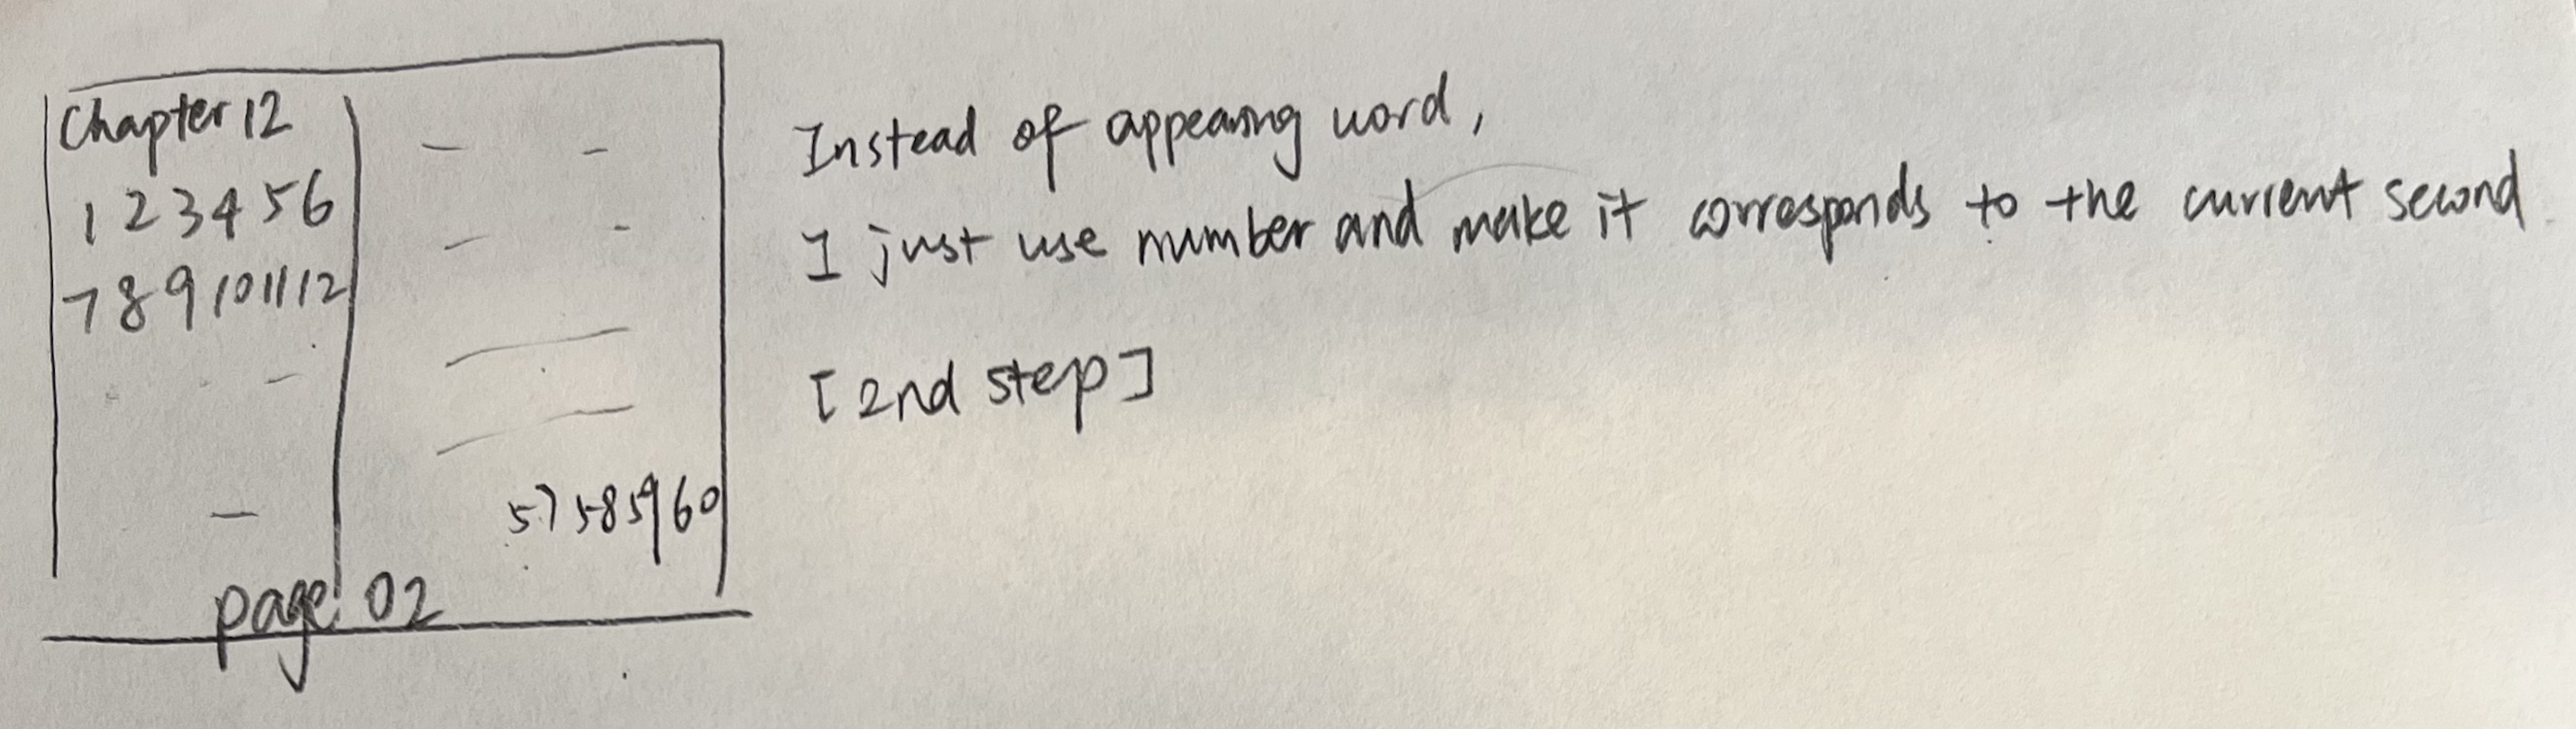 Chapter 12
1 2 3 4 5 6
7 8 9 10 11 12
57 58 59 60
page 02
Instead of appearing word,
I just use number and make it corresponds to the current second.
[2nd step]